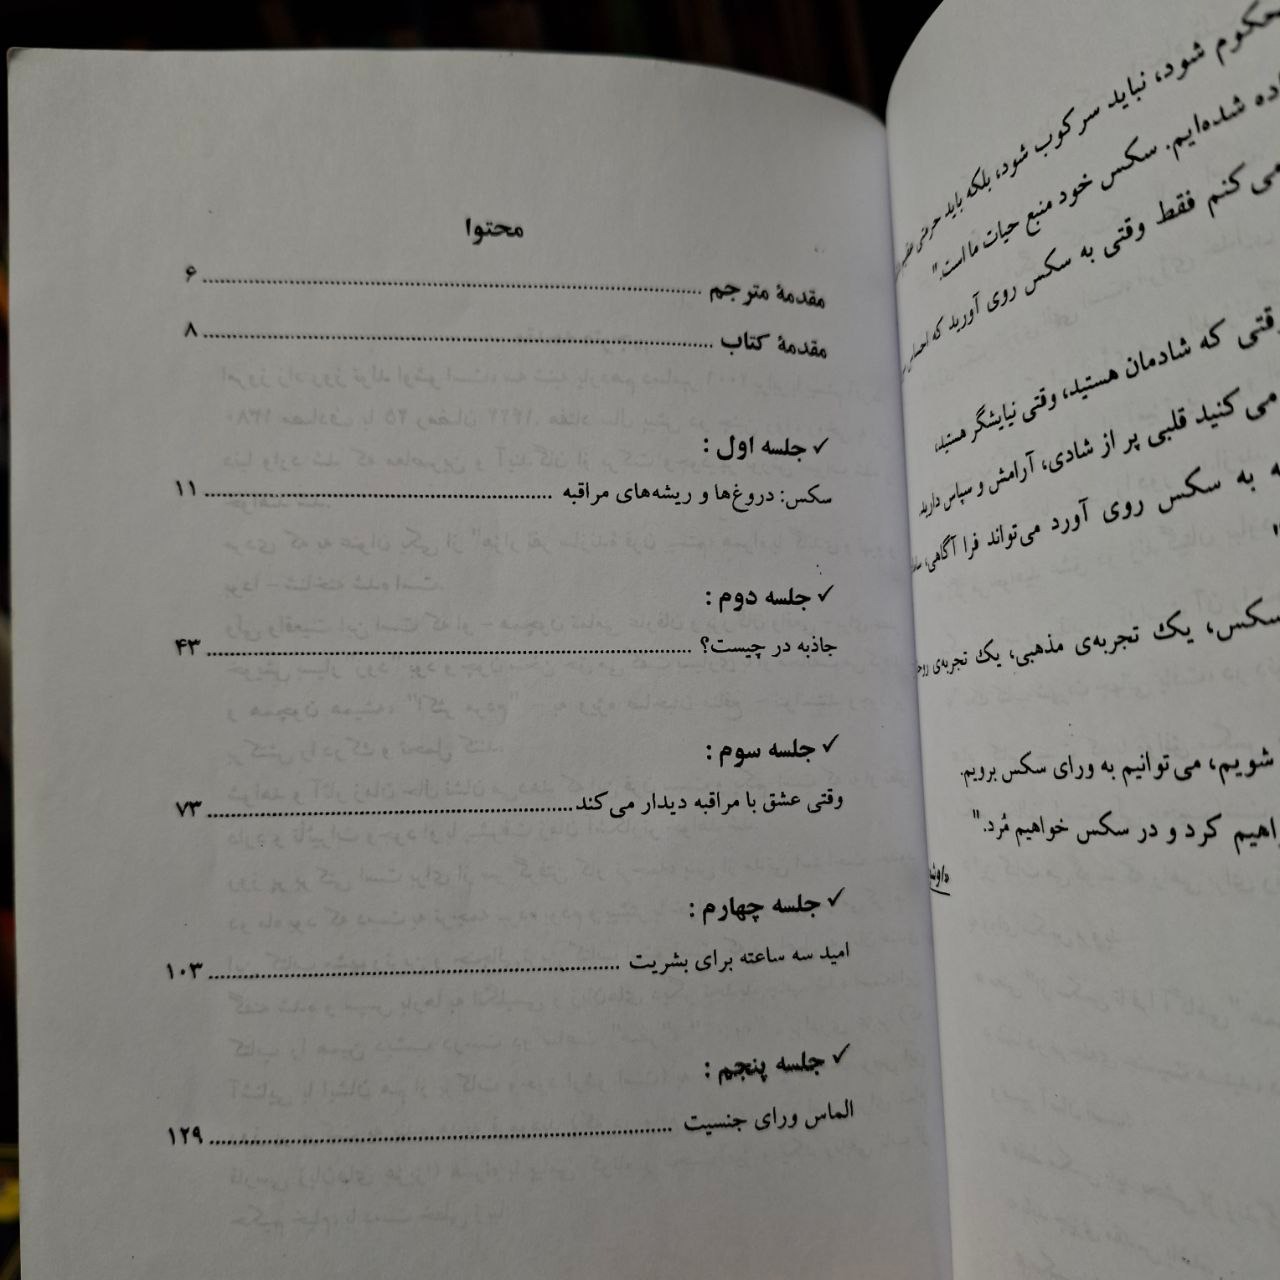 محتوا
مقدمهٔ مترجم ........ ۶
مقدمهٔ کتاب ........ ۸
✓ جلسه اول :
سکس: دروغ‌ها و ریشه‌های مراقبه ........ ۱۱
✓ جلسه دوم :
جاذبه در چیست؟ ........ ۴۳
✓ جلسه سوم :
وقتی عشق با مراقبه دیدار می‌کند ........ ۷۳
✓ جلسه چهارم :
امید سه ساعته برای بشریت ........ ۱۰۳
✓ جلسه پنجم :
الماس ورای جنسیت ........ ۱۲۹
شود، نباید سرکوب شود، بلکه باید
شده‌ایم. سکس خود منبع حیات ما است."
می کنم فقط وقتی به سکس روی آورید که
که شادمان هستید، وقتی نیایشگر هستید،
می کنید قلبی پر از شادی، آرامش و سپاس دارید.
به سکس روی آورد می‌تواند فرا آگاهی،
سکس، یک تجربه‌ی مذهبی، یک تجربه‌ی
شویم، می‌توانیم به ورای سکس برویم.
کرد و در سکس خواهیم مُرد."